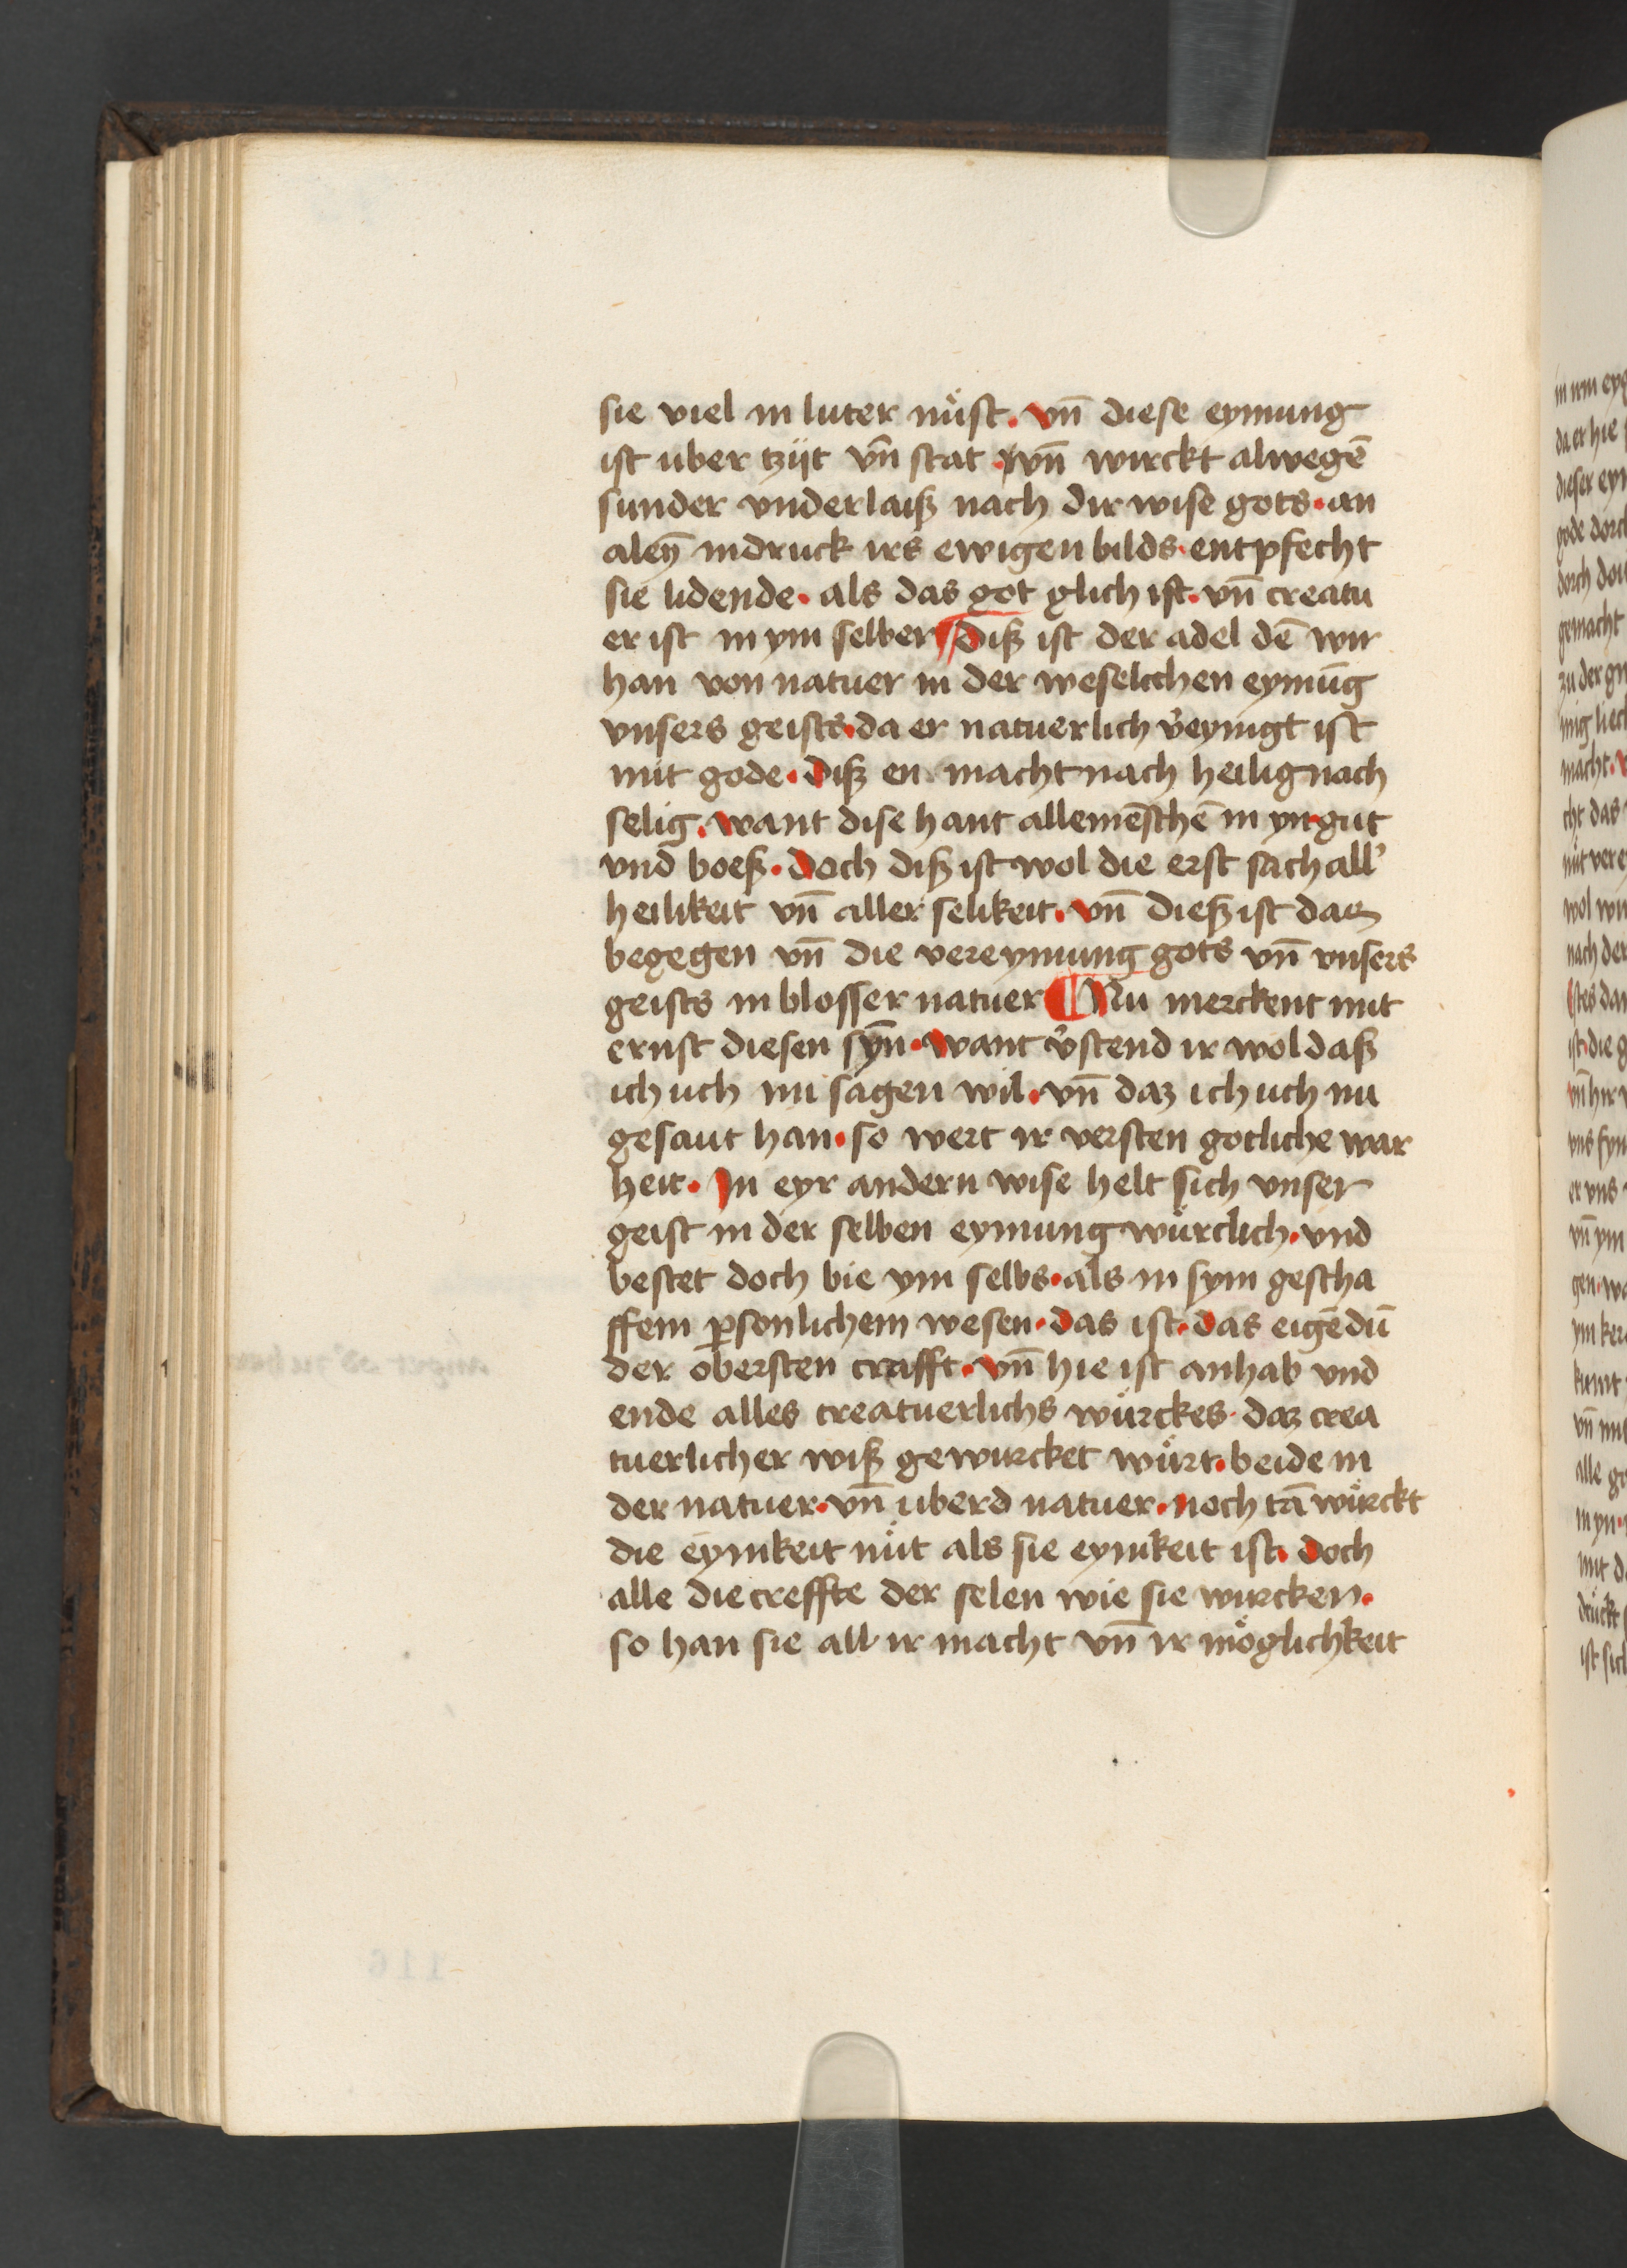 sie viel in luter nuͤst. vn̄ diese eynung
ist uber tzijt vn̄ stat vn̄ wirckt alwegē
sunder vnderlaiß nach dir wise gots. an
aleyn̄ indruck irs ewigen bilds. entpfecht
sie lidende. als das got glich ist. vn̄ creatu
er ist in ym selber ¶ diß ist der adel dē wir
han von natuer in der weselichen eynūg
vnsers geists. da er natuerlich v̓eynigt ist
mit gode. diß en macht nach heilig nach
selig. want dise hant alle mēschē in yn. gut
vnd boeß. doch diß ist wol die erst sach all̓
heilikeit vn̄ aller selikeit. vn̄ dieß ist das
begegen vn̄ die vereynung gots vn̄ vnsers
geists in blosser natuer ¶ Nu merckent mit
ernst diesen syn̄. want v̓stend ir wol daß
ich uch nu sagen wil. vn̄ daz ich uch nu
gesaut han. so wert ir versten gotliche war
heit. In eyr andern wise helt sich vnser
geist in der selben eynung wuͤrclich. vnd
bestet doch bie ym selbs. als in sym gescha
ffem ꝑsonlichem wesen. das ist. das eigēdū
der obersten crafft. vn̄ hie ist anhab vnd
ende alles creatuerlichs wuͤrckes. daz crea
tuerlicher wiß gewurcket wuͤrt. beide in
der natuer. vn̄ uberd natuer. noch tā wuͤrckt
die eynikeit nuͤt als sie eynikeit ist. doch
alle die creffte der selen wie sie wurcken.
so han sie all ir macht vn̄ ir moͤglichkeit